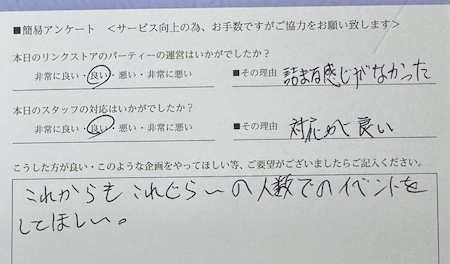 ■簡易アンケート ＜サービス向上の為、お手数ですがご協力をお願い致します＞
本日のリンクストアのパーティーの運営はいかがでしたか？
非常に良い・良い・悪い・非常に悪い ■その理由 詰まる感じがなかった
本日のスタッフの対応はいかがでしたか？
非常に良い・良い・悪い・非常に悪い ■その理由 対応が良い
こうした方が良い・このような企画をやってほしい等、ご要望がございましたらご記入ください。
これからもこれぐらいの人数でのイベントを
してほしい。